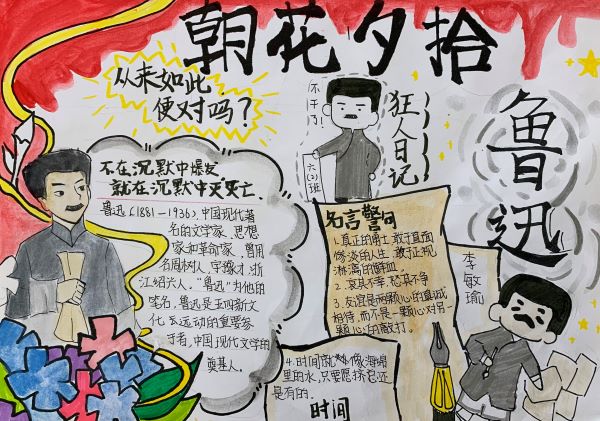 朝花夕拾
从来如此
便对吗？
不干了！
狂人日记
六(2)班
鲁迅
李敏瑜
不在沉默中爆发
就在沉默中灭亡.
鲁迅(1881—1936),中国现代著
名的文学家、思想
家和革命家,曾用
名周树人,字豫才,浙
江绍兴人,"鲁迅"为他的
笔名,鲁迅是五四新文
化运动的重要参
与者,中国现代文学的
奠基人.
名言警句
1.真正的勇士,敢于直面
惨淡的人生,敢于正视
淋漓的鲜血.
2.哀其不幸,怒其不争
3.友谊是两颗心的真诚
相待,而不是一颗心对另一
颗心的敲打.
4.时间就像海绵
里的水,只要愿挤总还
是有的.
时间